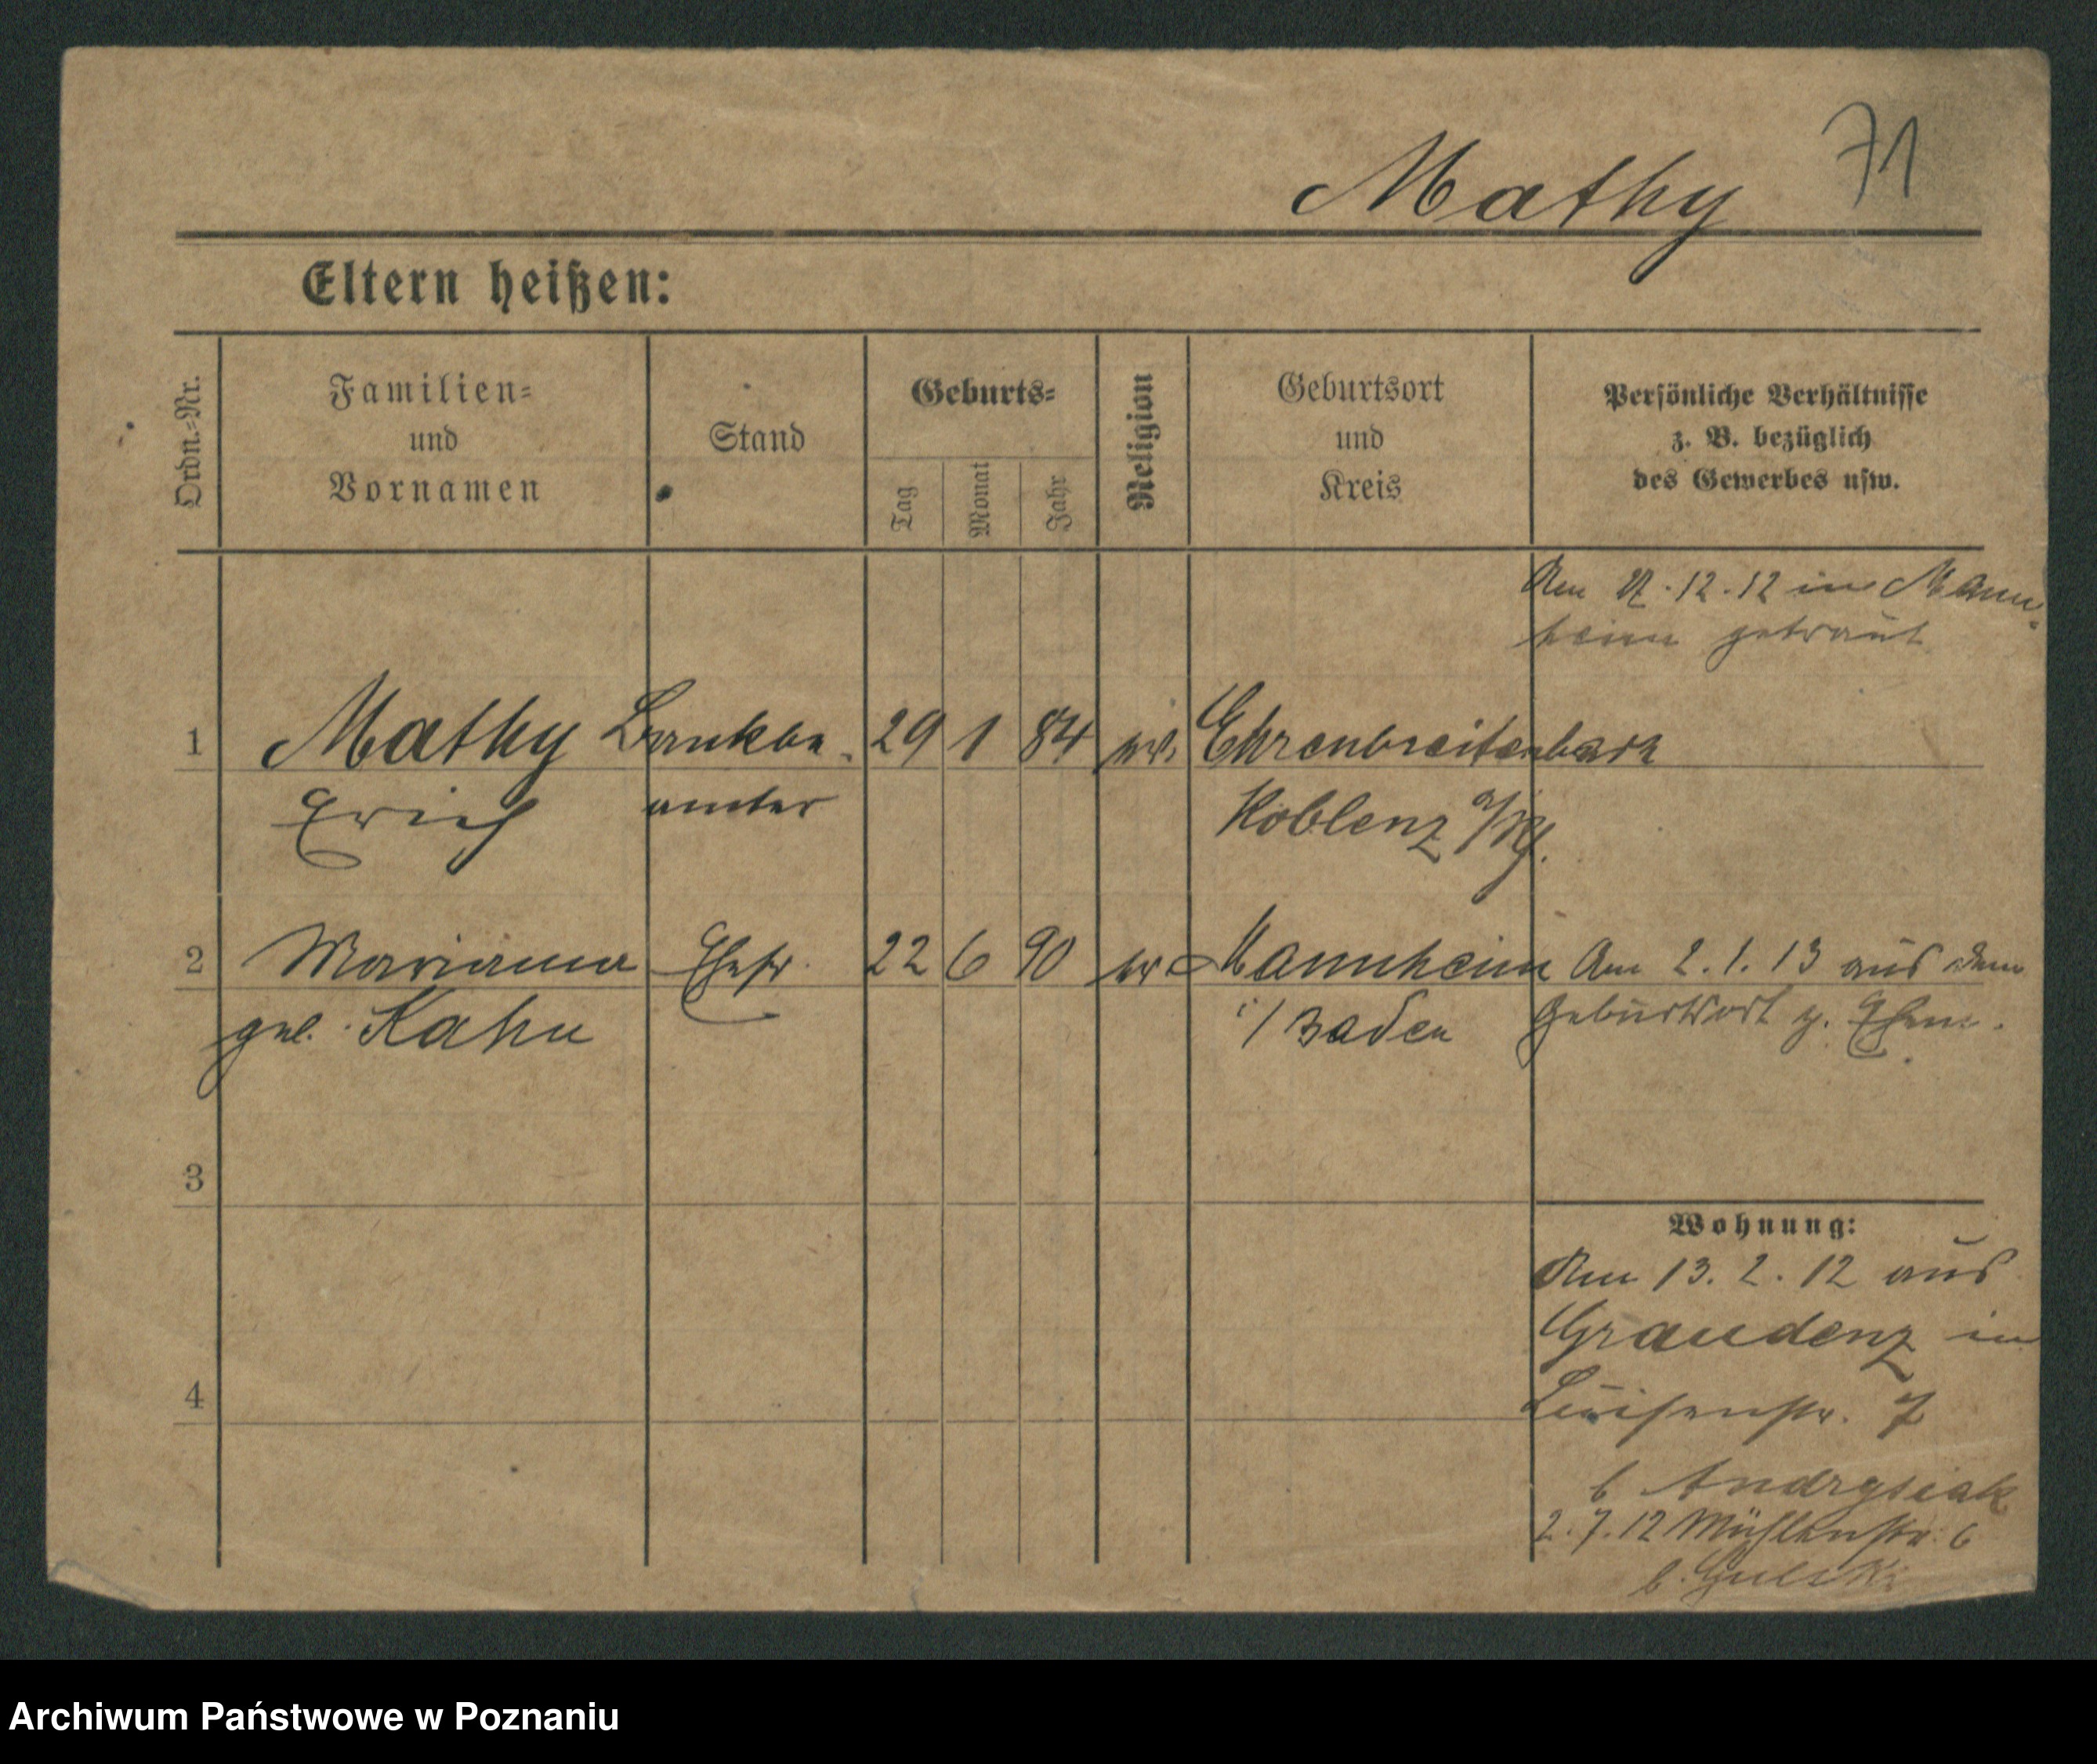 71
Mathy
Eltern heißen:
Ordn.-Nr.
Familien-
und
Vornamen
Stand
Geburts-
Tag
Monat
Jahr
Religion
Geburtsort
und
Kreis
Persönliche Verhältnisse
z. B. bezüglich
des Gewerbes usw.
Am .12.12 in Mann-
heim getraut
1 Mathy Bankbe- 29 1 84 Ehrenbreitenbach
Erich amter Koblenz a/Rh.
2 Marianna Ehefr. 22 6 90 Mannheim Am 2.1.13 aus dem
geb. Kahn i/Baden Geburtsort z. Ehem.
3
Wohnung:
Am 13.2.12 aus
Graudenz in
4 Luisenstr. 7
b Andrysiak
2.7.12 Mühlenstr. 6
b.
Archiwum Państwowe w Poznaniu